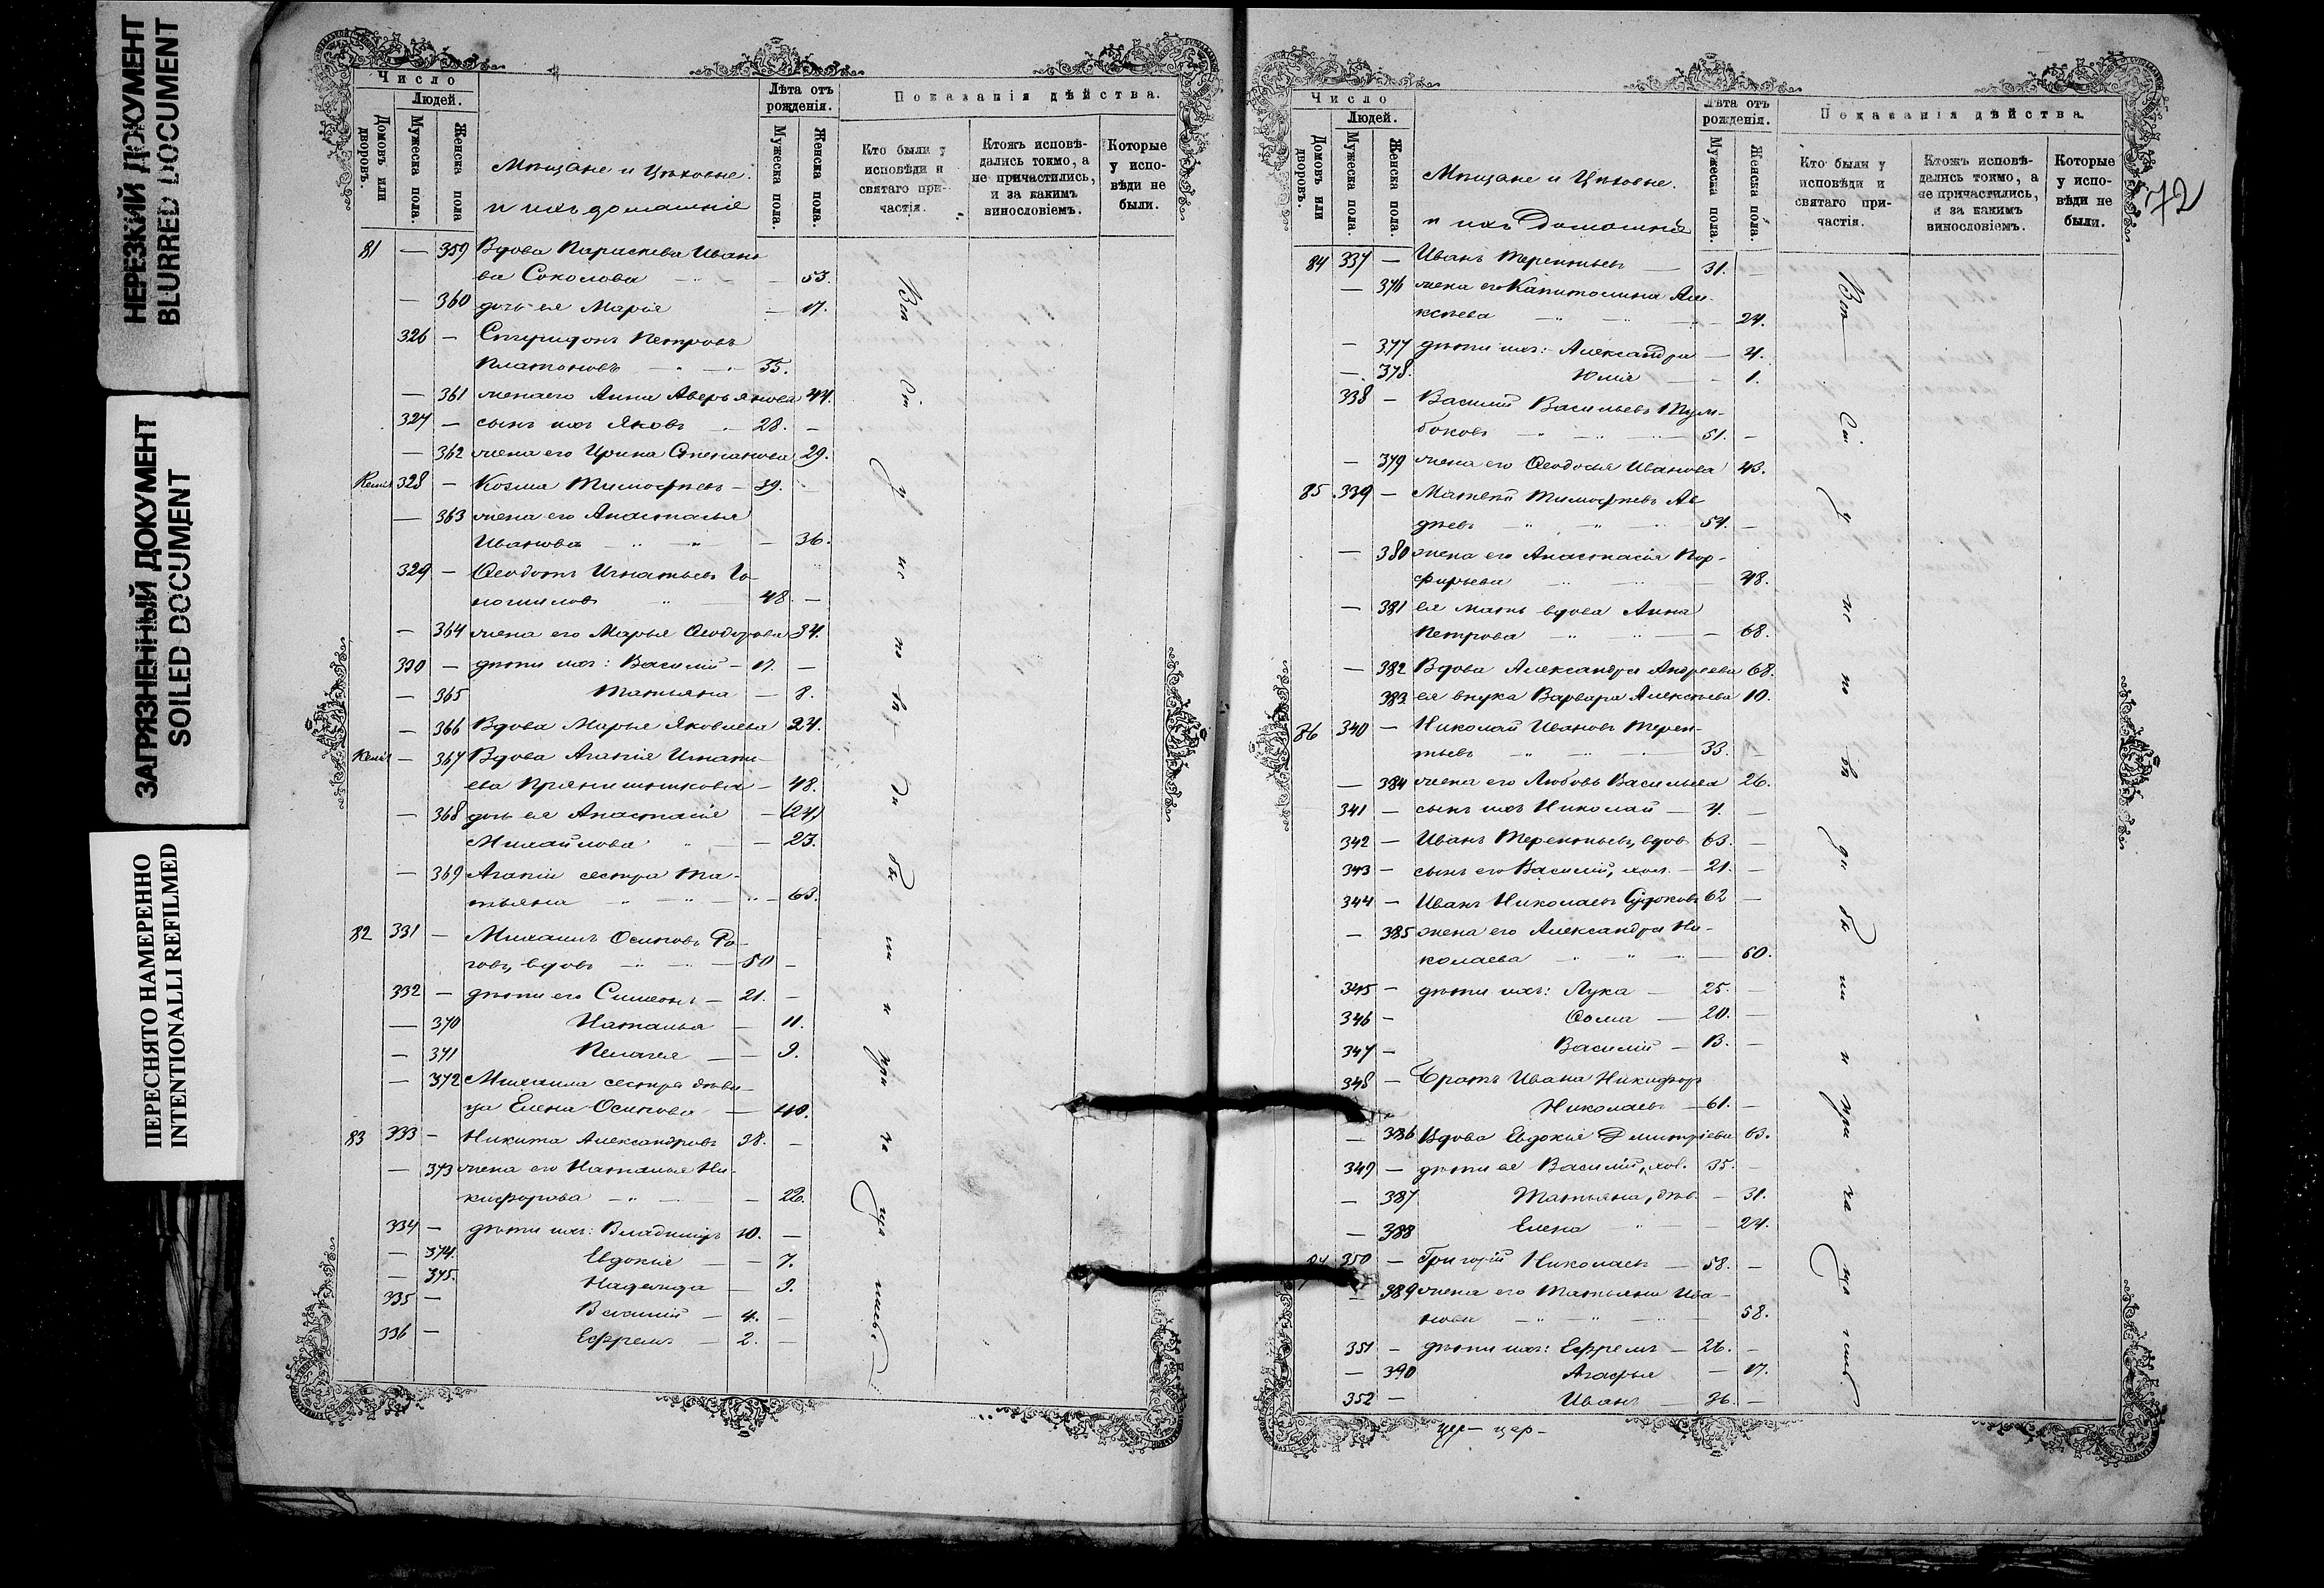 НЕРЕЗКИЙ ДОКУМЕНТ
BLURRED DOCUMENT
ЗАГРЯЗНЕННЫЙ ДОКУМЕНТ
SOILED DOCUMENT
ПЕРЕСНЯТО НАМЕРЕННО
INTENTIONALLI REFILMED
Число
Людей.
Домовъ или дворовъ.
Мужеска пола.
Женска пола
Мѣщане и Цѣховые.
и ихъ домашніе
Лѣта отъ рожденія.
Мужеска пола.
Женска пола.
Показанія дѣйства.
Кто были у исповѣди и святаго при-
частія.
Ктожъ исповѣ-
дались токмо, а
не причастились,
и за какимъ
винословіемъ.
Которые
у испо-
вѣди не
были.
81 — 359 Вдова Параскева Ивано
ва Соколова — 53.
— 360 дочь ея Марія — 17.
326 — Спиридонъ Петровъ
Платоновъ 55.
— 361 жена его Анна Аверьянова 44.
327 — сынъ ихъ Яковъ 28. —
— 362 жена его Ирина Степанова 29.
328 — Козма Тимофѣевъ — 39. —
— 363 жена его Анастасья
Иванова — 36.
329 — Ѳеодотъ Игнатьевъ
48. —
— 364 жена его Марья Ѳеодорова 34.
330 — дѣти ихъ: Василій — 17. —
— 365 Татьяна — 8.
— 366 Вдова Марья Яковлева 24.
— 367 Вдова Агапія Игнать-
ева Прянишникова — 48.
— 368 дочь ея Анастасія — (24)
Михайлова — 23.
— 369 Агапіи сестра Та-
тьяна — 63.
82 331 — Михаилъ Осиповъ Ро-
говъ, вдовъ — 50 —
332 — дѣти его Симеонъ — 21. —
— 370 Наталья — 11.
— 371 Пелагея — 9.
— 372 Михаила сестра дѣви-
ца Елена Осипова — 40.
83 333 — Никита Александровъ 38. —
— 373 жена его Наталья Ни-
кифорова — 22.
334 — дѣти ихъ: Владиміръ 10. —
— 374. Евдокія — 7.
— 375. Надежда — 9.
335 — Василій — 4. —
336 — Ефремъ — 2. —
Всѣ Св у ис по вѣ ди бы ли и при ча ща лись.
72
Число
Людей.
Домовъ или дворовъ.
Мужеска пола.
Женска пола.
Мѣщане и Цѣховые.
и ихъ Домашніе
Лѣта отъ рожденія.
Мужеска пола.
Женска пола.
Показанія дѣйства.
Кто были у
исповѣди и
святаго при-
частія.
Ктожъ исповѣ-
дались токмо, а
не причастились,
и за какимъ
винословіемъ.
Которые
у испо-
вѣди не
были.
84 337 — Иванъ Терентьевъ — 31. —
— 376 жена его Капитолина Але-
ксѣева — 24.
— 377 дѣти ихъ: Александра — 4.
— 378. Юлія — 1.
338 — Василій Васильевъ
51. —
— 379 жена его Ѳеодосья Иванова 43.
85 339 — Матвѣй Тимофѣевъ Ав
дѣевъ 54. —
— 380 жена его Анастасія Пор-
фирьева — 48.
— 381 ея мать вдова Анна
Петрова — 68.
— 382 Вдова Александра Андреева 68.
383 ея внука Варвара Алексѣева 10.
86 340 — Николай Ивановъ Терен-
тьевъ — 33. —
— 384 жена его Любовь Васильева 26.
341 — сынъ ихъ Николай — 4. —
342 — Иванъ Терентьевъ, вдов 63. —
343 — сынъ его Василій, хол. — 21. —
344 — Иванъ Николаевъ Судоковъ 62 —
— 385 жена его Александра Ни-
колаева — 60.
345 — дѣти ихъ: Лука — 25. —
346 — Ѳома — 20. —
347 — Василій — 13. —
348 — Братъ Ивана Никифоръ
Николаевъ — 61. —
— 386 Вдова Евдокія Димитріева 63.
349 — дѣти ея Василій, хол. 35. —
— 387 Татьяна, дѣв. — 31.
— 388 Елена — 24.
350 — Григорій Николаевъ — 58. —
— 389 жена его Татьяна Ива-
нова — 58.
351 — дѣти ихъ: Ефремъ — 26. —
— 390 Агафья — 17.
352 — Иванъ 26. —
Всѣ Св у ис по вѣ ди бы ли и при ча ща лись
цер — цер —